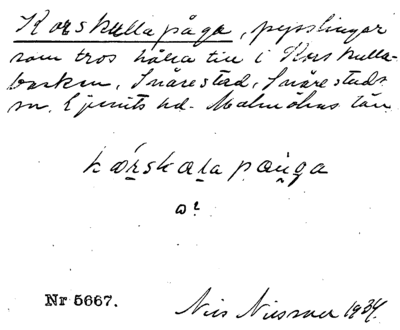 Korskullapåga, pysslingar
som tros hålla till i Korskulla-
backen, Snårestad, Snårestads
sn, Ljunits hd. Malmöhus län.
kórskula pauga
Nr 5667.
Nils Nilsson 1934.